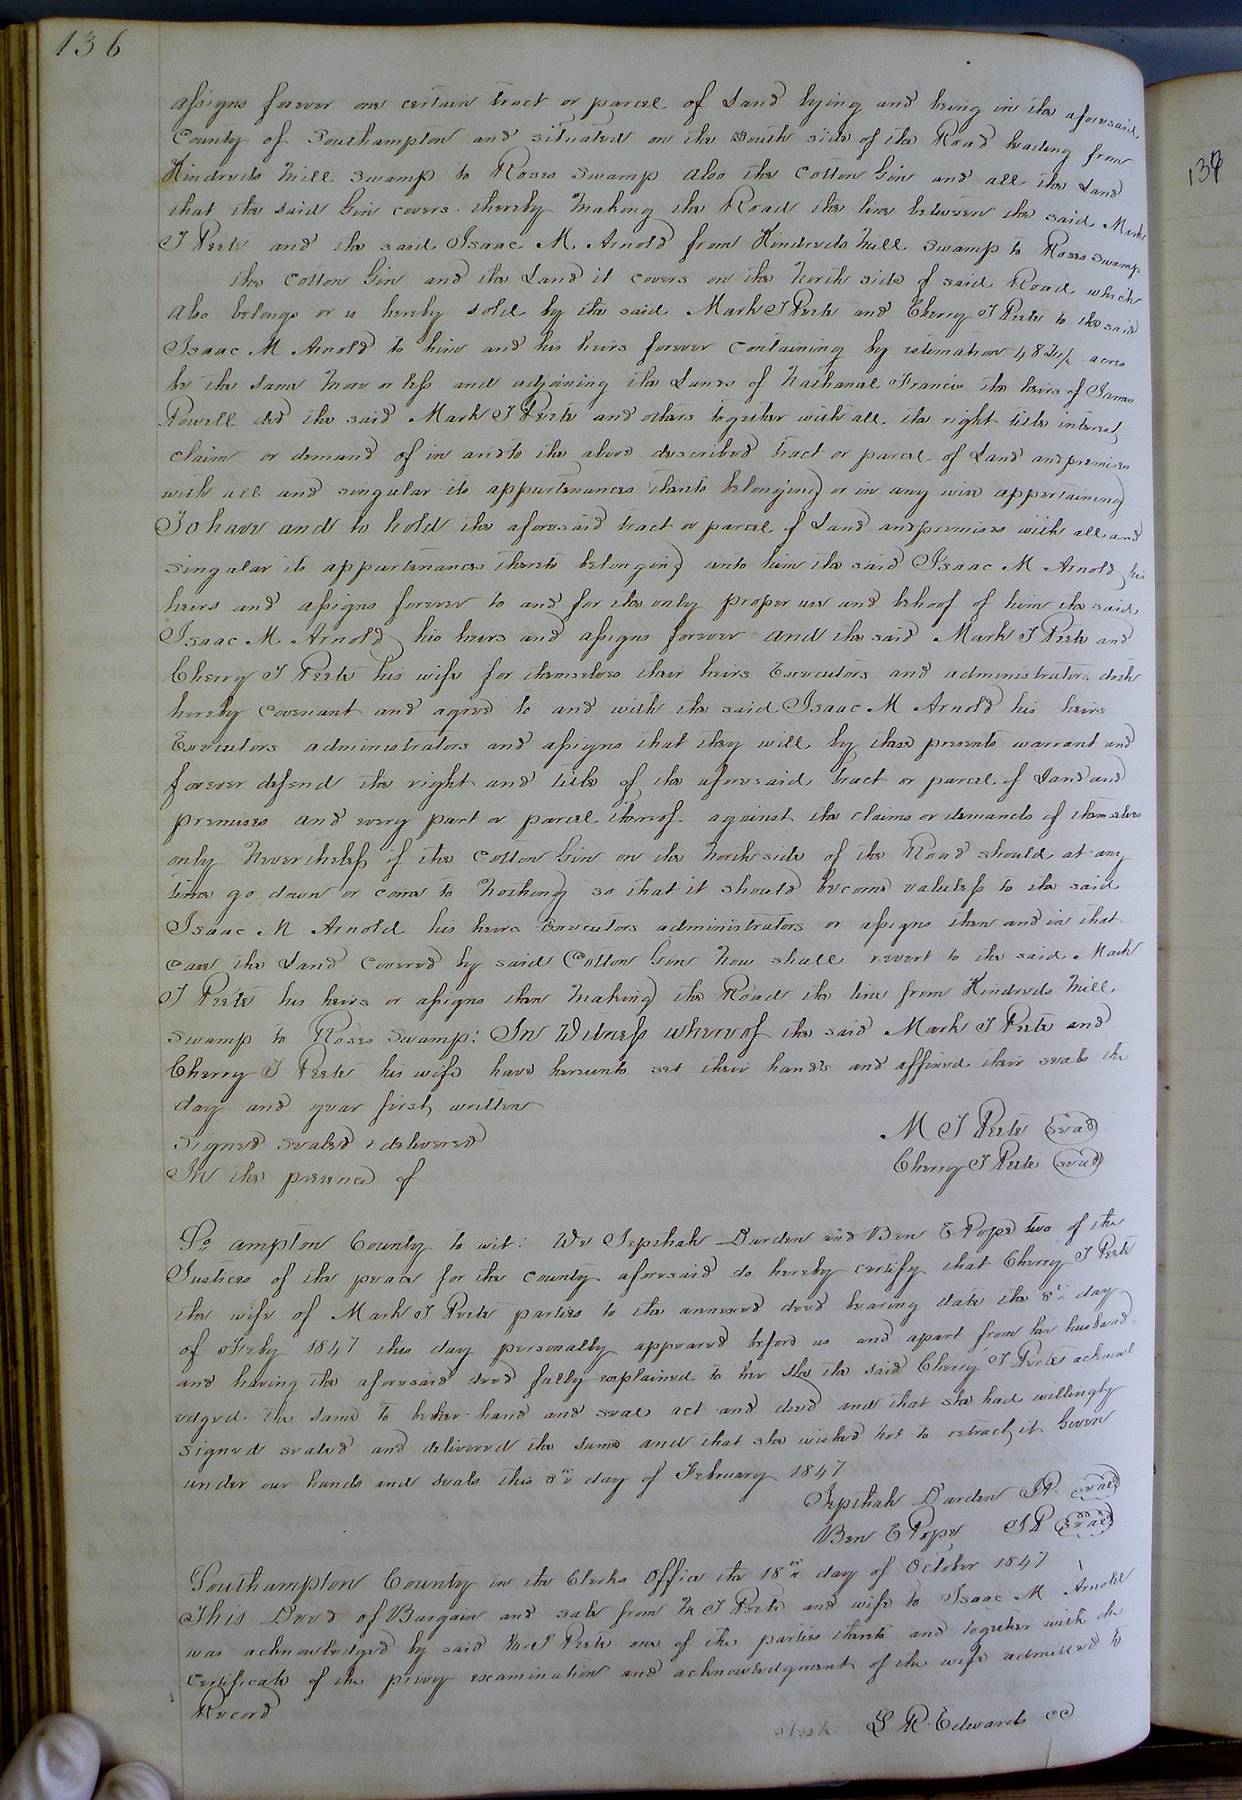 136
assigns forever one certain tract or parcel of Land lying and being in the aforesaid
County of Southampton and situated on the South side of the Road leading from
Kindreds Mill Swamp to Roses Swamp also the Cotton Gin and all the Land
that the said Gin covers thereby making the Road the line between the said Mark
T Peete and the said Isaac M. Arnold from Kindreds Mill Swamp to Roses Swamp
the Cotton Gin and the Land it covers on the North side of said Road which
also belongs or is hereby sold by the said Mark T Peete and Cherry T Peete to the said
Isaac M Arnold to him and his heirs forever Containing by estimation acres
be the same more or less and adjoining the Lands of Nathanal Francis the heirs of James
Powell ded the said Mark T Peete and others together with all the right title interest
claim or demand of in and to the above described tract or parcel of Land and premises
with all and singular its appurtenances thereto belonging or in any wise appertaining
To have and to hold the aforesaid tract or parcel of Land and premises with all and
singular its appurtenances thereto belonging unto him the said Isaac M Arnold his
heirs and assigns forever to and for the only proper use and behoof of him the said
Isaac M. Arnold his heirs and assigns forever and the said Mark T Peete and
Cherry T Peete his wife for themselves their heirs Executors and administrators doth
hereby Covenant and agree to and with the said Isaac M Arnold his heirs
Executors administrators and assigns that they will by these presents warrant and
forever defend the right and title of the aforesaid tract or parcel of Land and
premises and every part or parcel thereof against the claims or demands of themselves
only Nevertheless if the Cotton Gin on the North side of the Road should at any
time go down or come to Nothing so that it should become valuless to the said
Isaac M Arnold his heirs Executors administrators or assigns then and in that
case the Land Covered by said Cotton Gin Now shall revert to the said Mark
T Peete his heirs or assigns then making the Road the line from Kindreds Mill
Swamp to Roses Swamp: In Witness whereof the said Mark T Peete and
Cherry T Peete his wife have hereunto set their hands and affixed their seals the
day and year first written
Signed sealed & delivered
In the presence of
M T Peete (seal)
Cherry T Peete (seal)
So ampton County to wit: We Jepthah Darden and Ben E Pope two of the
Justices of the peace for the County aforesaid do hereby certify that Cherry T Peete
the wife of Mark T Peete parties to the annexed deed bearing date the 8th day
of Feby 1847 this day personally appeared before us and apart from her husband
and having the aforesaid deed fully explained to her She the said Cherry T Peete acknowl
edged the same to be her hand and seal act and deed and that she had willingly
signed sealed and delivered the same and that she wished not to retract it Given
under our hands and seals this 8th day of February 1847
Jepthah Darden JP. (seal)
Ben E Pope JP (seal)
Southampton County in the Clerks Office the 18th day of October 1847
This Deed of Bargain and sale from M T Peete and wife to Isaac M Arnold
was acknowledged by said M T Peete one of the parties thereto and together with the
Certificate of the privy examination and acknowledgment of the wife admitted to
Record
Teste L R Edwards CC
137